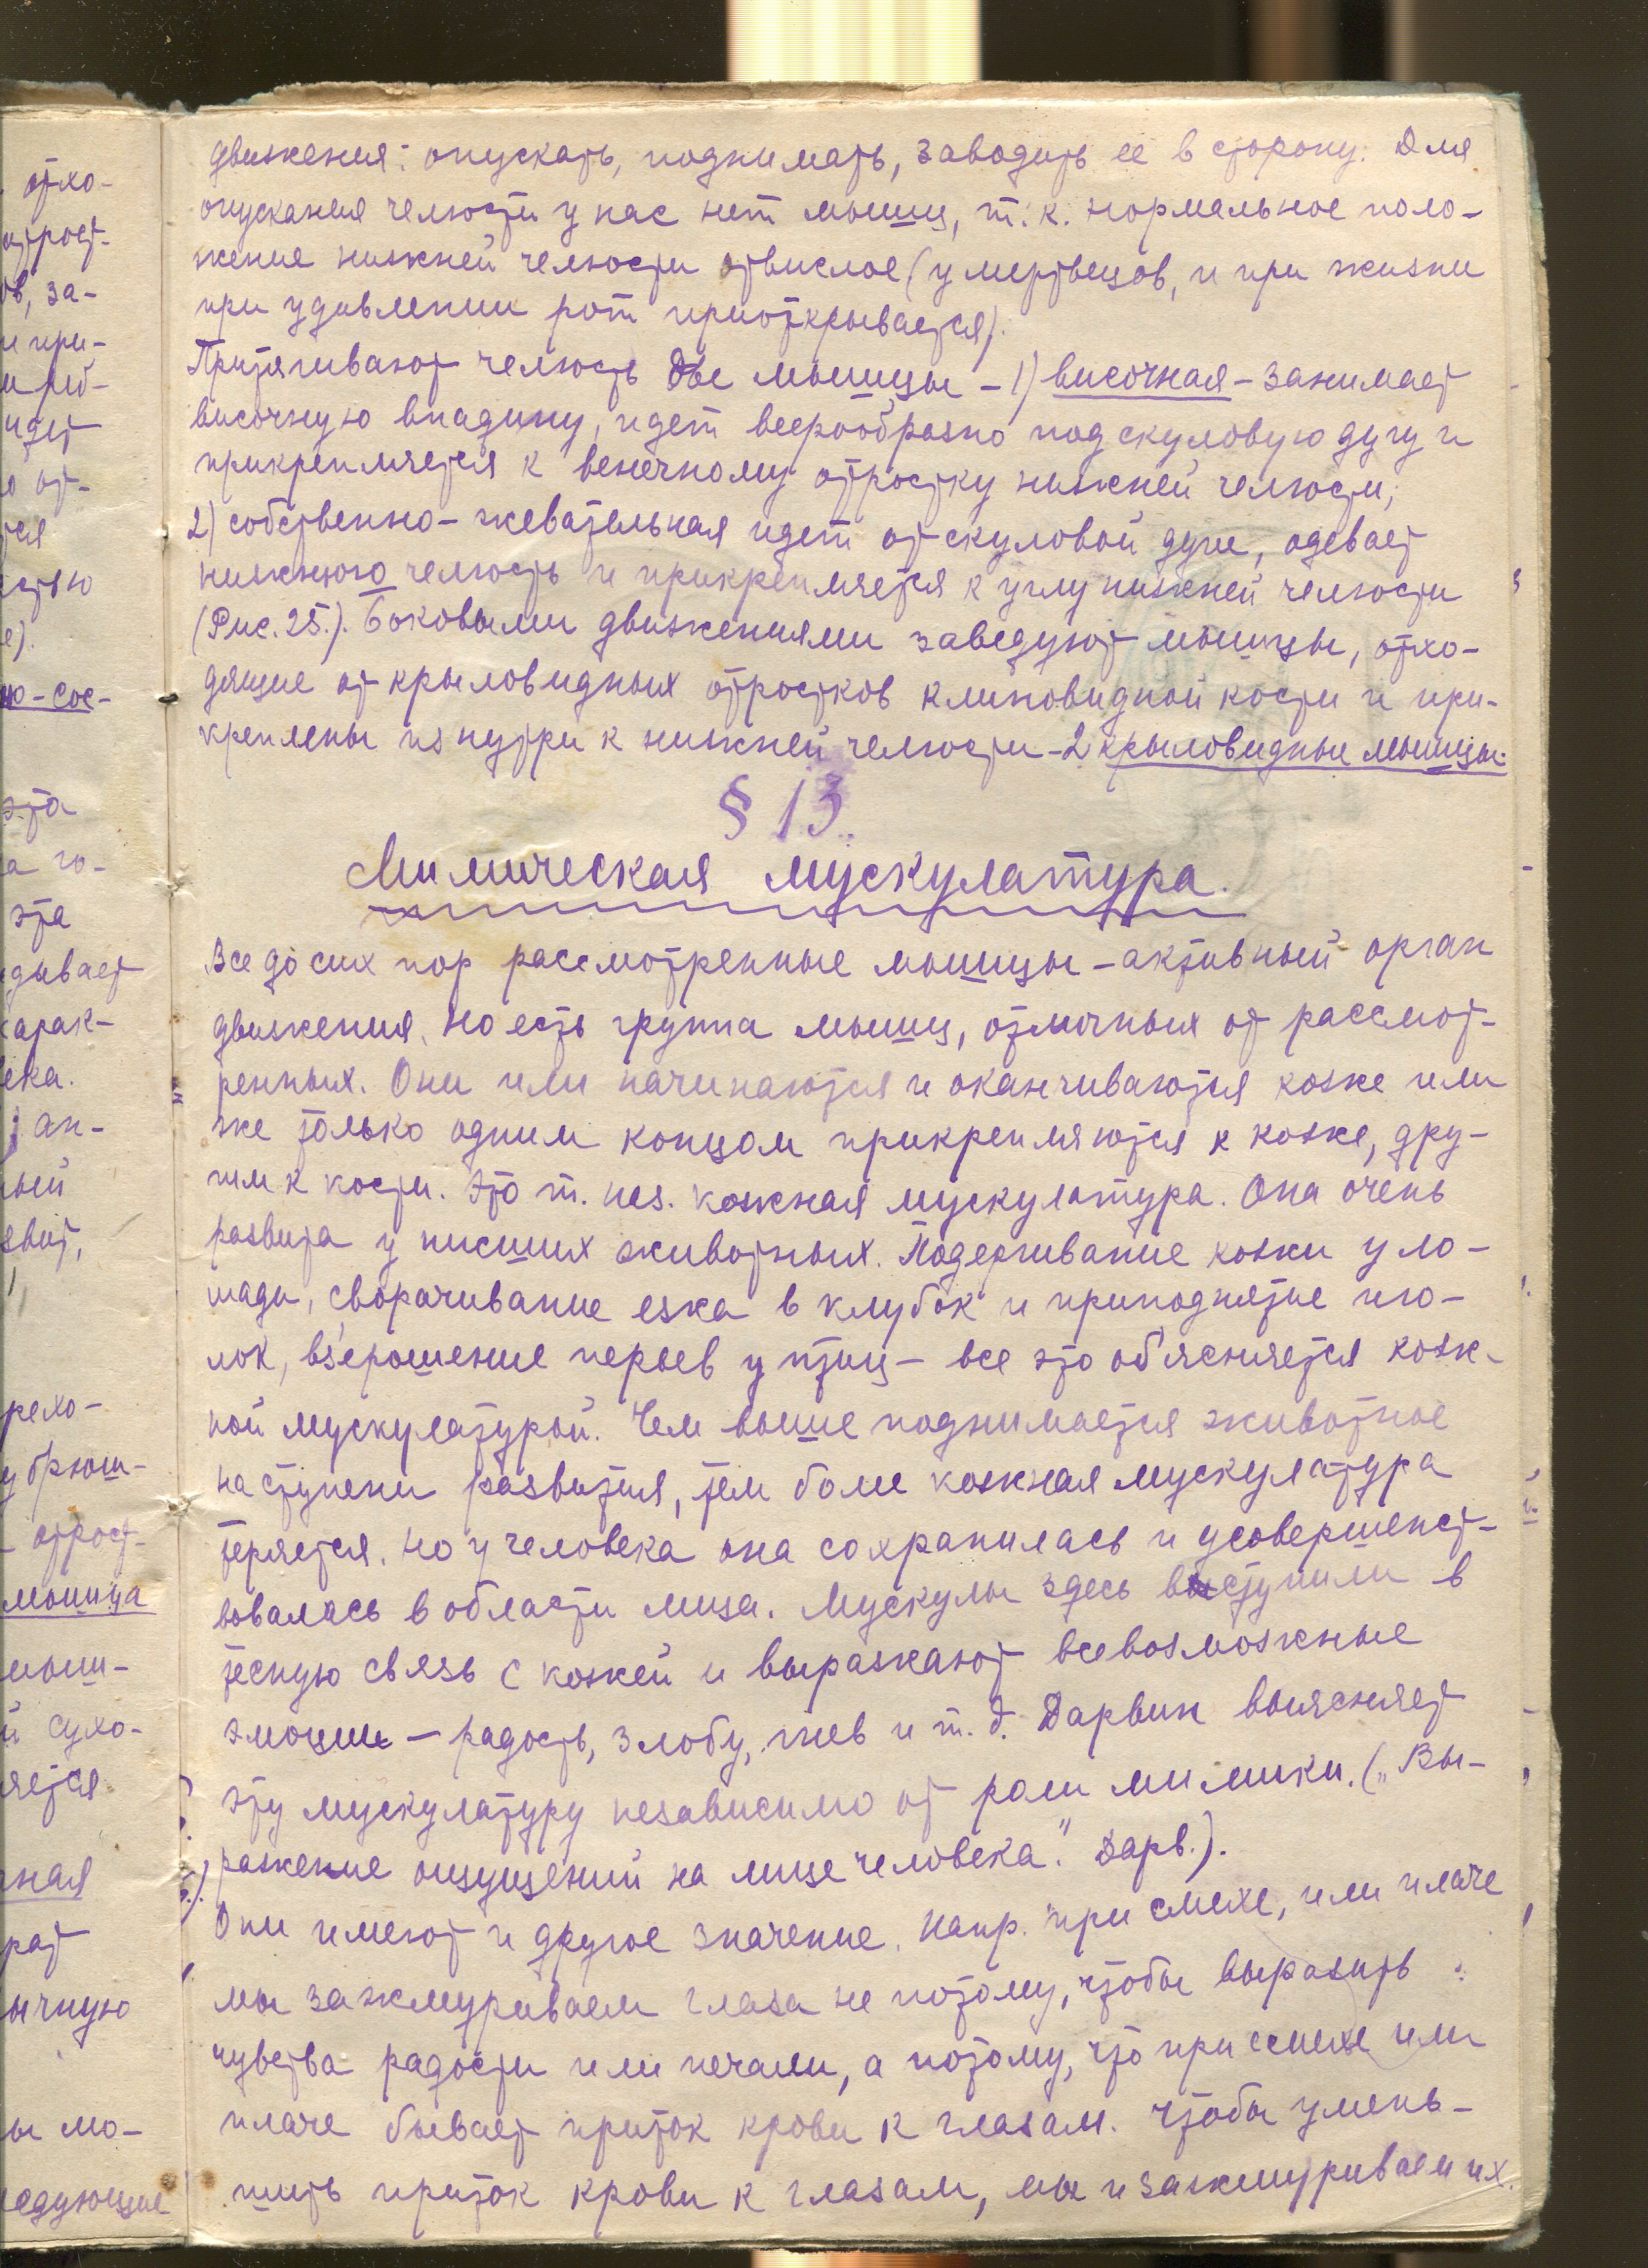 движения: опускать, поднимать, заводить ее в сторону. Для
опускания челюсти у нас нет мышц, т. к. нормальное поло-
жение нижней челюсти отвислое (у мертвецов, и при жизни
при удивлении рот приоткрывается).
Притягивают челюсть две мышцы – 1) височная – занимает
височную впадину, идет веерообразно под скуловую дугу и
прикрепляется к венечному отростку нижней челюсти,
2) собственно – жевательная идет от скуловой дуги, одевает
нижнюю челюсть и прикрепляется к углу нижней челюсти
(Рис. 25.). Боковыми движениями заведуют мышцы, отхо-
дящие от крыловидных отростков клиновидной кости и при-
креплены изнутри к нижней челюсти – 2 крыловидные мышцы.
§ 13.
Мимическая мускулатура.
Все до сих пор рассмотренные мышцы – активный орган
движения. Но есть группа мышц, отличных от рассмот-
ренных. Они или начинаются и оканчиваются коже или
же только одним концом прикрепляются к коже, дру-
гим к кости. Это т. наз. кожная мускулатура. Она очень
развита у низших животных. Подергивание кожи у ло-
шади, сворачивание ежа в клубок и приподнятие иго-
лок, взъерошение перьев у птиц – все это об'ясняется кож-
ной мускулатурой. Чем выше поднимается животное
на ступени развития, тем боле кожная мускулатура
теряется. Но у человека она сохранилась и усовершенст-
вовалась в области лица. Мускулы здесь вступили в
тесную связь с кожей и выражают всевозможные
эмоции – радость, злобу, гнев и т. д. Дарвин выясняет
эту мускулатуру независимо от роли мимики. („Вы-
ражение ощущений на лице человека." Дарв.).
Они имеют и другое значение. Напр. при смехе, или плаче
мы зажмуриваем глаза не потому, чтобы выразить
чувства радости или печали, а потому, что при смехе или
плаче бывает приток крови к глазам. Чтобы умень-
шить приток крови к глазам, мы и зажмуриваем их.